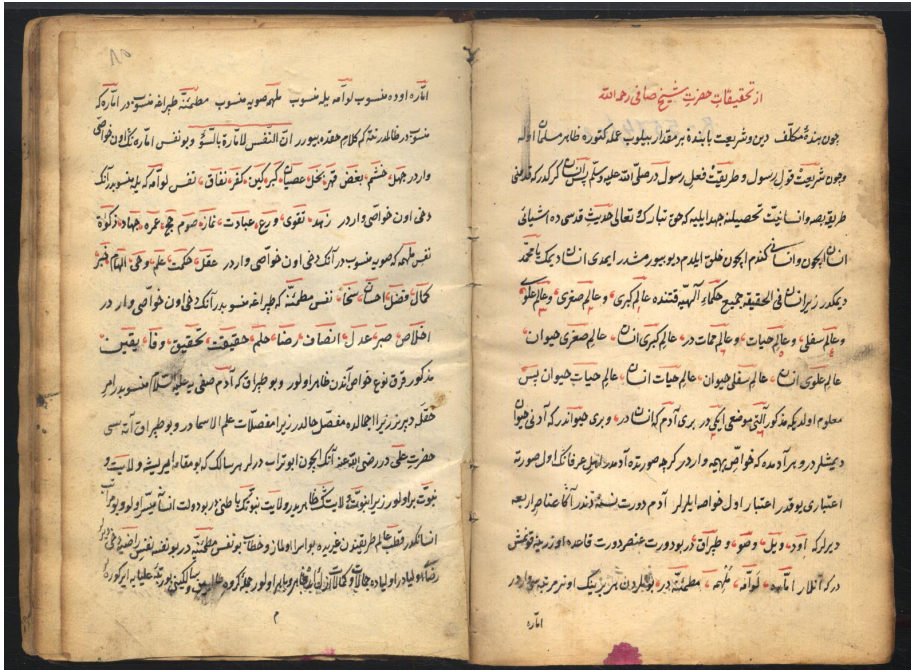 از تحقیقات حضرت شیخ صافی رحمه الله
چون بندهٔ مکلف دین و شریعت یا بندهٔ بر مقدار بیلوب عمله کتوره ظاهر مسلمان اوله
وچون شریعت قول رسول و طریقت فعل رسول در صلی الله علیه وسلم پس انسان کرکدرکه قدمنی
طریقیصه وانسانیت تحصیلنه جهد ایلیه که حق تبارک و تعالی حدیث قدسی ده اشیائی
انسان ایچون وانسانی کندم ایچون خلق ایلدم دیو بیورمشدر ایمدی انسان دیمک یا محمد
دیمکدر زیرا انسان فی الحقیقه جمیع حکماء الهیه قتنده عالم کبری و عالم صغری و عالم علوی
و عالم سفلی و عالم حیات و عالم ممات در عالم کبری انسان عالم صغری حیوان
عالم علوی انسان عالم سفلی حیوان عالم حیات انسان عالم حیات حیوان پس
معلوم اولدیکه مذکور آلتی موضعی ایکی در بری آدم که انسان در و بری حیواندر که آدنی حیوان
دیمشلر در و بر آدمده که خواص بهیمه وارد در کرچه صورتده آدمدر لیکن عرفانک اول صورته
اعتباری یوقدر اعتبار اول خواصه ایلرلر آدم دورت نسنه‌دندر آکا عناصر اربعه
دیرلر که اود و یل و صو و طپراق در بو دورت عنصر دورت قاعده اوزرینه قونمش
درکه آنلار اماره لوامه ملهمه مطمئنه در بو بلردن هر برینک اونر مرتبه سی وار در
اماره
۸۵
اماره اوده منسوب لوامه یله منسوب ملهمه صویه منسوب مطمئنه طپراغه منسوب در اماره که
منسوب در ظالمدر نته کم کلام حقده بیورر ان النفس لامارة بالسوء و بو نفس اماره نک اون خواصی
وار در جهل خشم بغض قهر بخل عصیان کبر کین کفر نفاق نفس لوامه که یله منسوبدر آنک
دخی اون خواصی وار در زهد تقوی ورع عبادت نماز صوم حج عمره جهاد زکوة
نفس ملهمه که صویه منسوب در آنک دخی اون خواصی وار در عقل حکمت علم وحی الهام خیر
کمال فضل احسان سخا نفس مطمئنه که طپراغه منسوبدر آنک دخی اون خواصی وار در
اخلاص صبر عدل انصاف رضا حلم حقیقت تحقیق وفا یقین
مذکور قرق نوع خواص آندن ظاهر اولور و بو طپراق که آدم صفی یه علیه السلام منسوبدر امر
حقله دیرز زیرا اجمالده مفصل حالدر زیرا مفصلات علم الاسما در و بو طپراق آته سی
حضرت علی در رضی الله عنه آنک ایچون ابو تراب دیرلر هر سالک که بو مقامه ایریشه ولایت و
نبوت بر اولور زیرا نبوت ولایتک ظاهریدر ولایت نبوتک باطنیدر بو دولت انسانه میسر اولور و بو مراتب
انسانکدر قطب عالم طریقندن غیریده بو اسرار اولماز و خطاب بو نفس مطمئنه در بو نفسه نفس راضیه دخی دیرلر